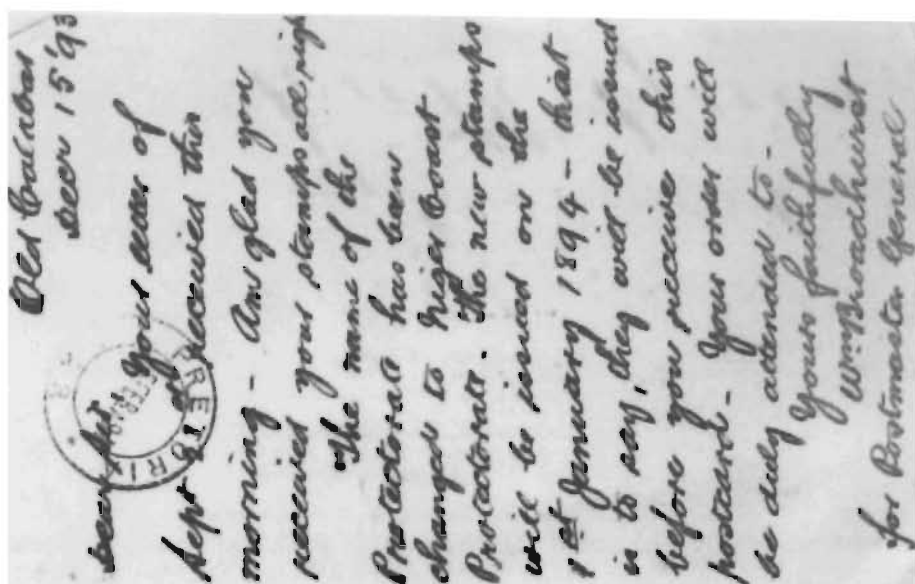 Old Calabar
Dec 15 '93
Dear Sir
Your of
Sept received this
morning - Am glad you
received your stamps all right
The name of the
Protectorate has been
changed to Niger Coast
Protectorate. The new stamps
will be issued on the
1st January 1894 - that
is to say, they will be issued
before you receive this
postcard - Your order will
be duly attended to -
Yours faithfully
W. Broadhurst
for Postmaster General
PRETORIA